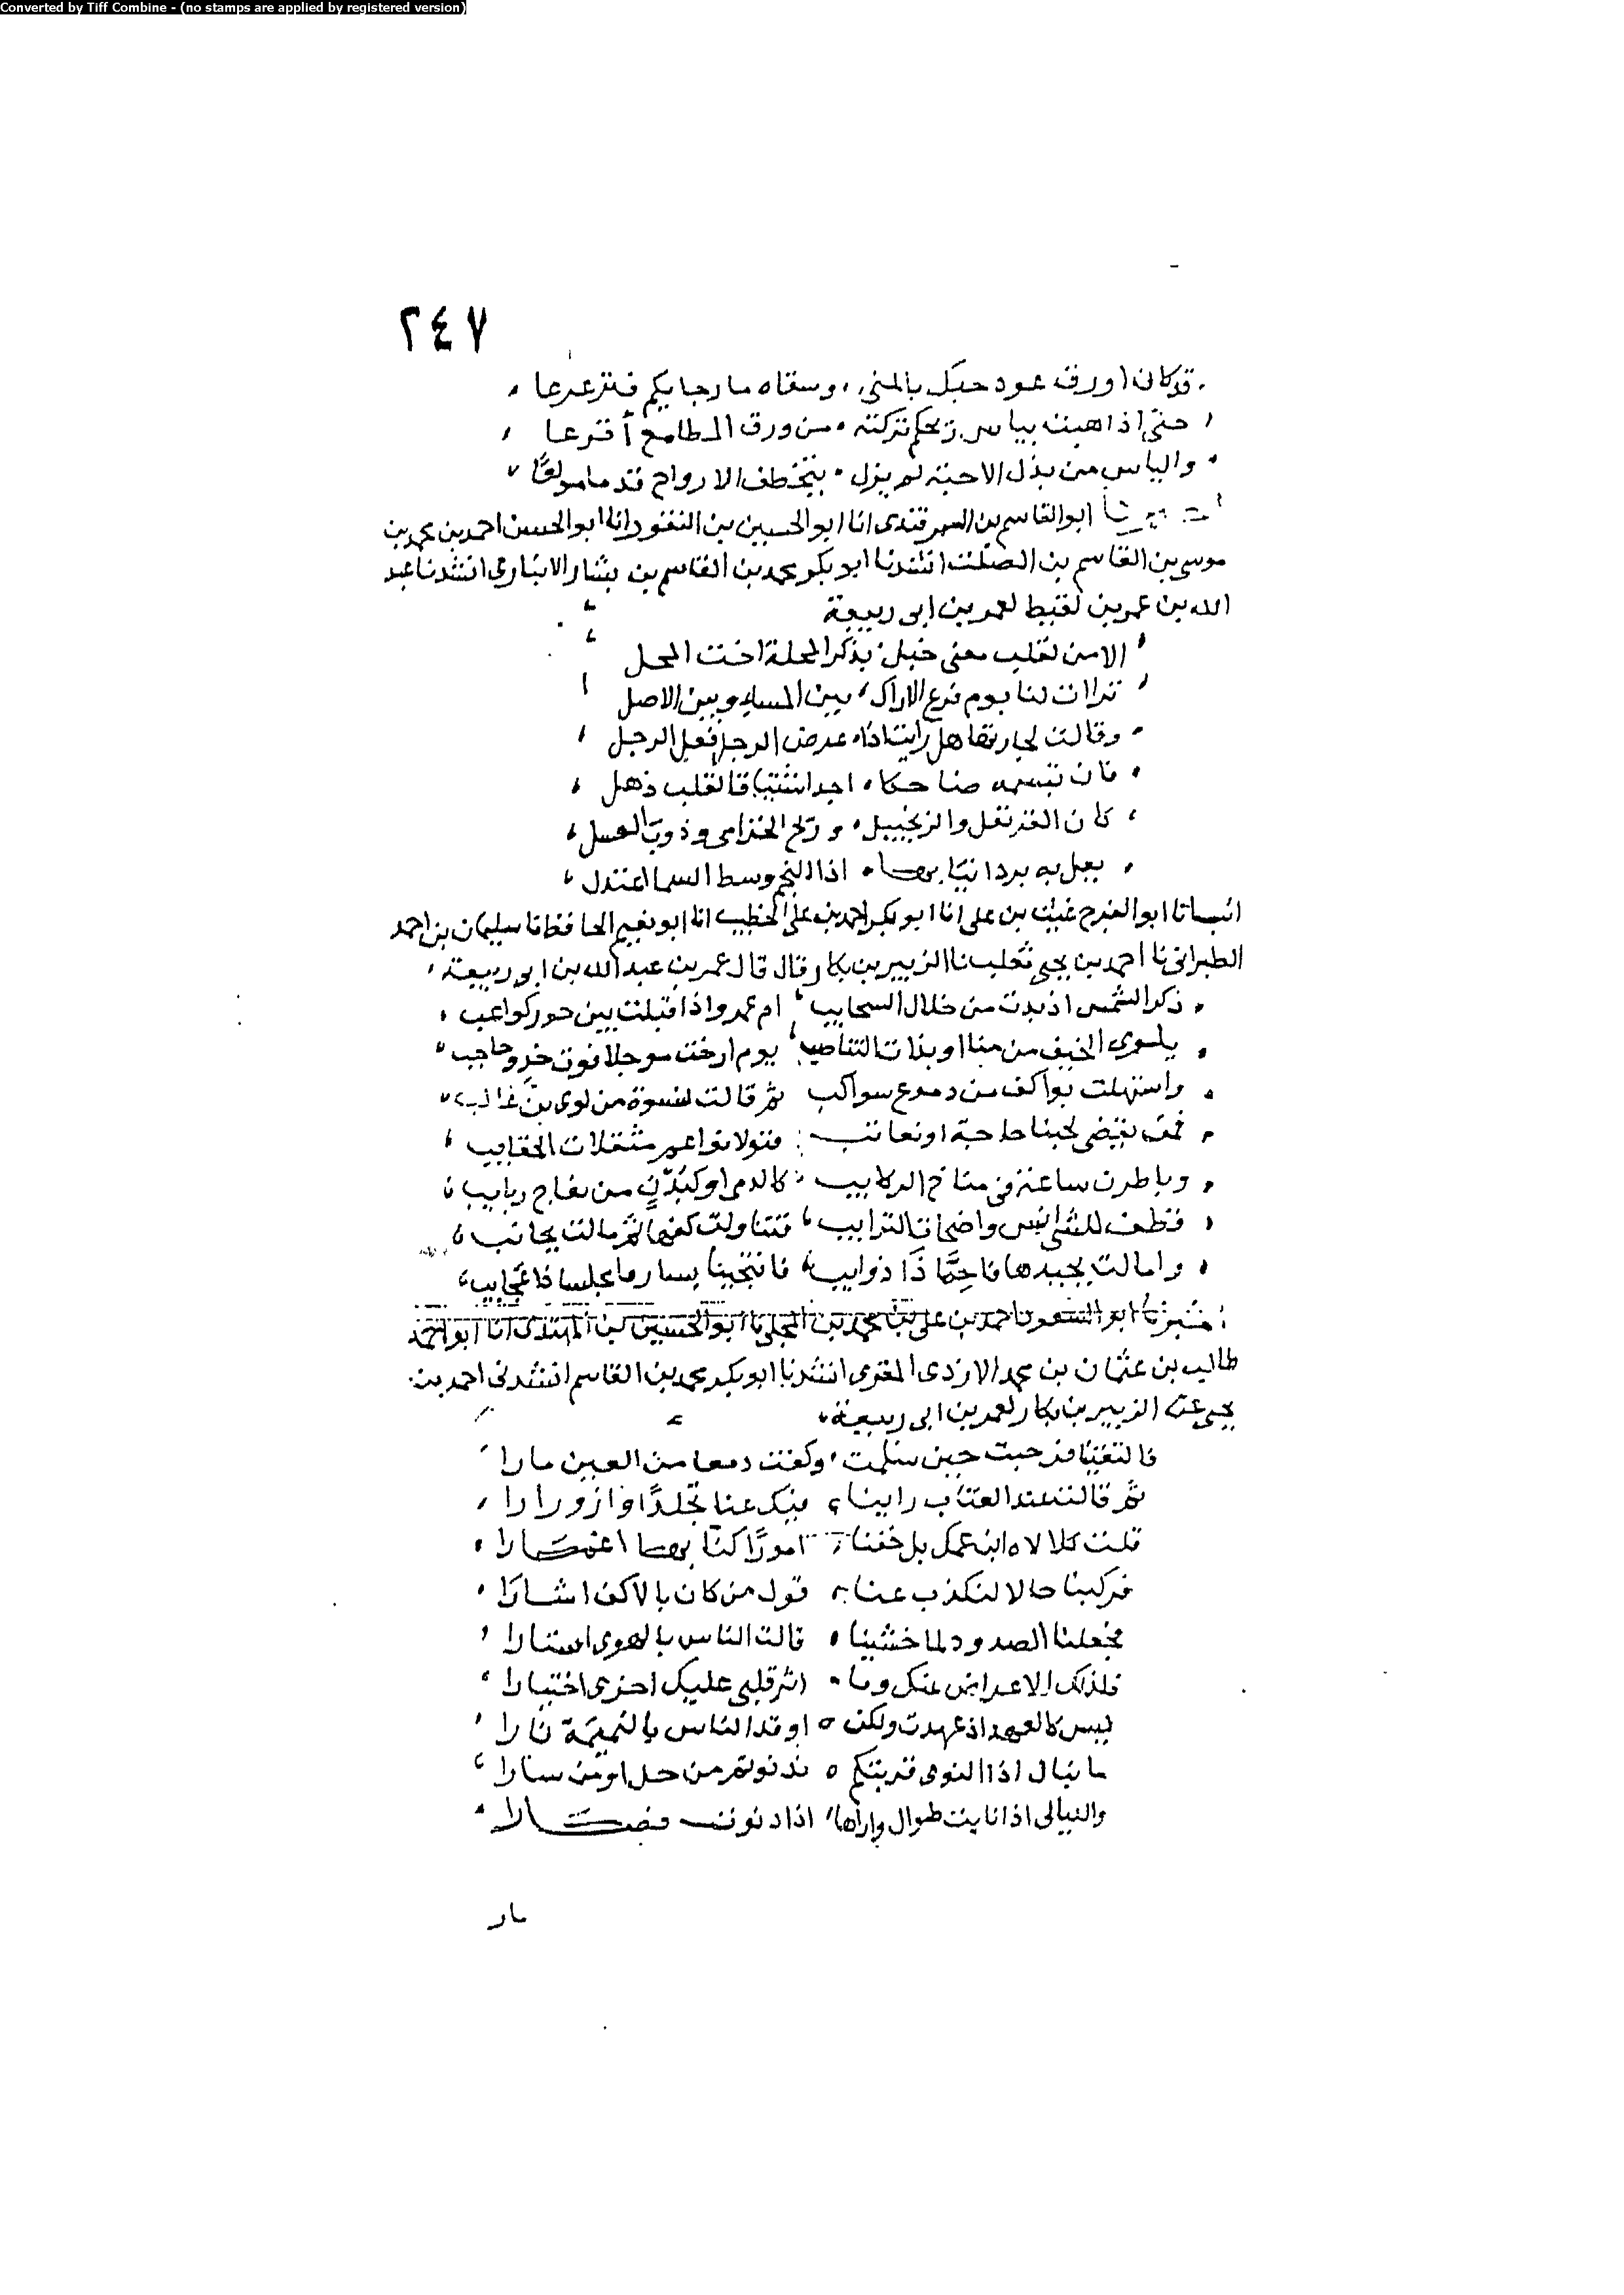 Converted by Tiff Combine - (no stamps are applied by registered version)
٢٤٧
قد كان اورق عود حبك بالمنى وسقاه ما رجايكم فترعرعا
حتى اذا هبت بياس ريحكم تركته من ورق المطامع أقرعا
والياس من بذل الاحبة لم يزل يتخطف الارواح قدما مولعًا
ابو القاسم بن السمرقندى انا ابو الحسين بن النقور انا ابو الحسن احمد بن محمد بن
موسى بن القاسم بن الصلت انشدنا ابو بكر محمد بن القاسم بن بشار الانبارى انشدنا عبد
الله بن عمر بن لقيط لعمر بن ابى ربيعة
الا من لقلب معنى خبل بذكر المحلة اخت المحل
تراات لنا يوم فرع الاراك بين المساء وبين الاصل
وقالت لجارتها هل رايت اذا عرض الرجل فعل الرجل
فان تبسمه ضاحكا اجد اشتياقا لقلب ذهل
كان القرنفل والزنجبيل وريح الخزامى وذوب العسل
يعل به برد انيابها اذا النجم وسط السما اعتدل
انبانا ابو الفرج غيث بن على انا ابو بكر احمد بن على الخطيب انا ابو نعيم الحافظ نا سليمان بن احمد
الطبرانى نا احمد بن يحيى ثعلب نا الزبير بن بكار قال قال عمر بن عبد الله بن ابى ربيعة
ذكر الشمس اذ بدت من خلال السحايب ام عمرو اذ اقبلت بين حور كواعب
الخيف من منا او بذات التناضب يوم ارخت مرجلا فوق خد وحاجب
واستهلت بواكف من دموع سواكب ثم قالت لنسوة من لوى بن غالب
قمن نقضى لحبنا حاجة او نعاتب فتولا نواعم مثقلات الحقايب
ساعة فى مناخ الركايب كالدمى او من نعاج ربايب
واضحات الترايب تتناولت كفها ثم مالت بجانب
وامالت بجيدها فاحمًا ذا ذوايب فانتجينا بسارها مجلسا ذا عجايب
ابو السعود احمد بن على بن محمد بن المجلى نا ابو الحسين بن المهتدى انا ابو احمد
طالب بن عثمان بن محمد الازدى المقرى انشدنا ابو بكر محمد بن القاسم انشدنى احمد بن
يحيى عن الزبير بن بكار لعمر بن ابى ربيعة
فالتقينا فرحبت حين سلمت وكفت دمعا من العين مارا
ثم قالت عند العتاب راينا منك عنا تجلدًا وازورارا
قلت كلا لاه ابن عمك بل خفنا امورًا كنا بها اغمارا
فركبنا حالا لنكذب عنا قول من كان بالاكف اشارا
فجعلنا الصدود لما خشينا قالت الناس بالهوى استارا
فلذاك الاعراض عنك وما اثر قلبى عليك اخرى اختيارا
ليس كالعهد اذ عهدت ولكن اوقد الناس بالنميمة نارا
ما نبال اذا النوى قربتكم فدنوتم من حل او من سارا
والليالى اذا نايت طوال واراها اذا دنوت قصارا